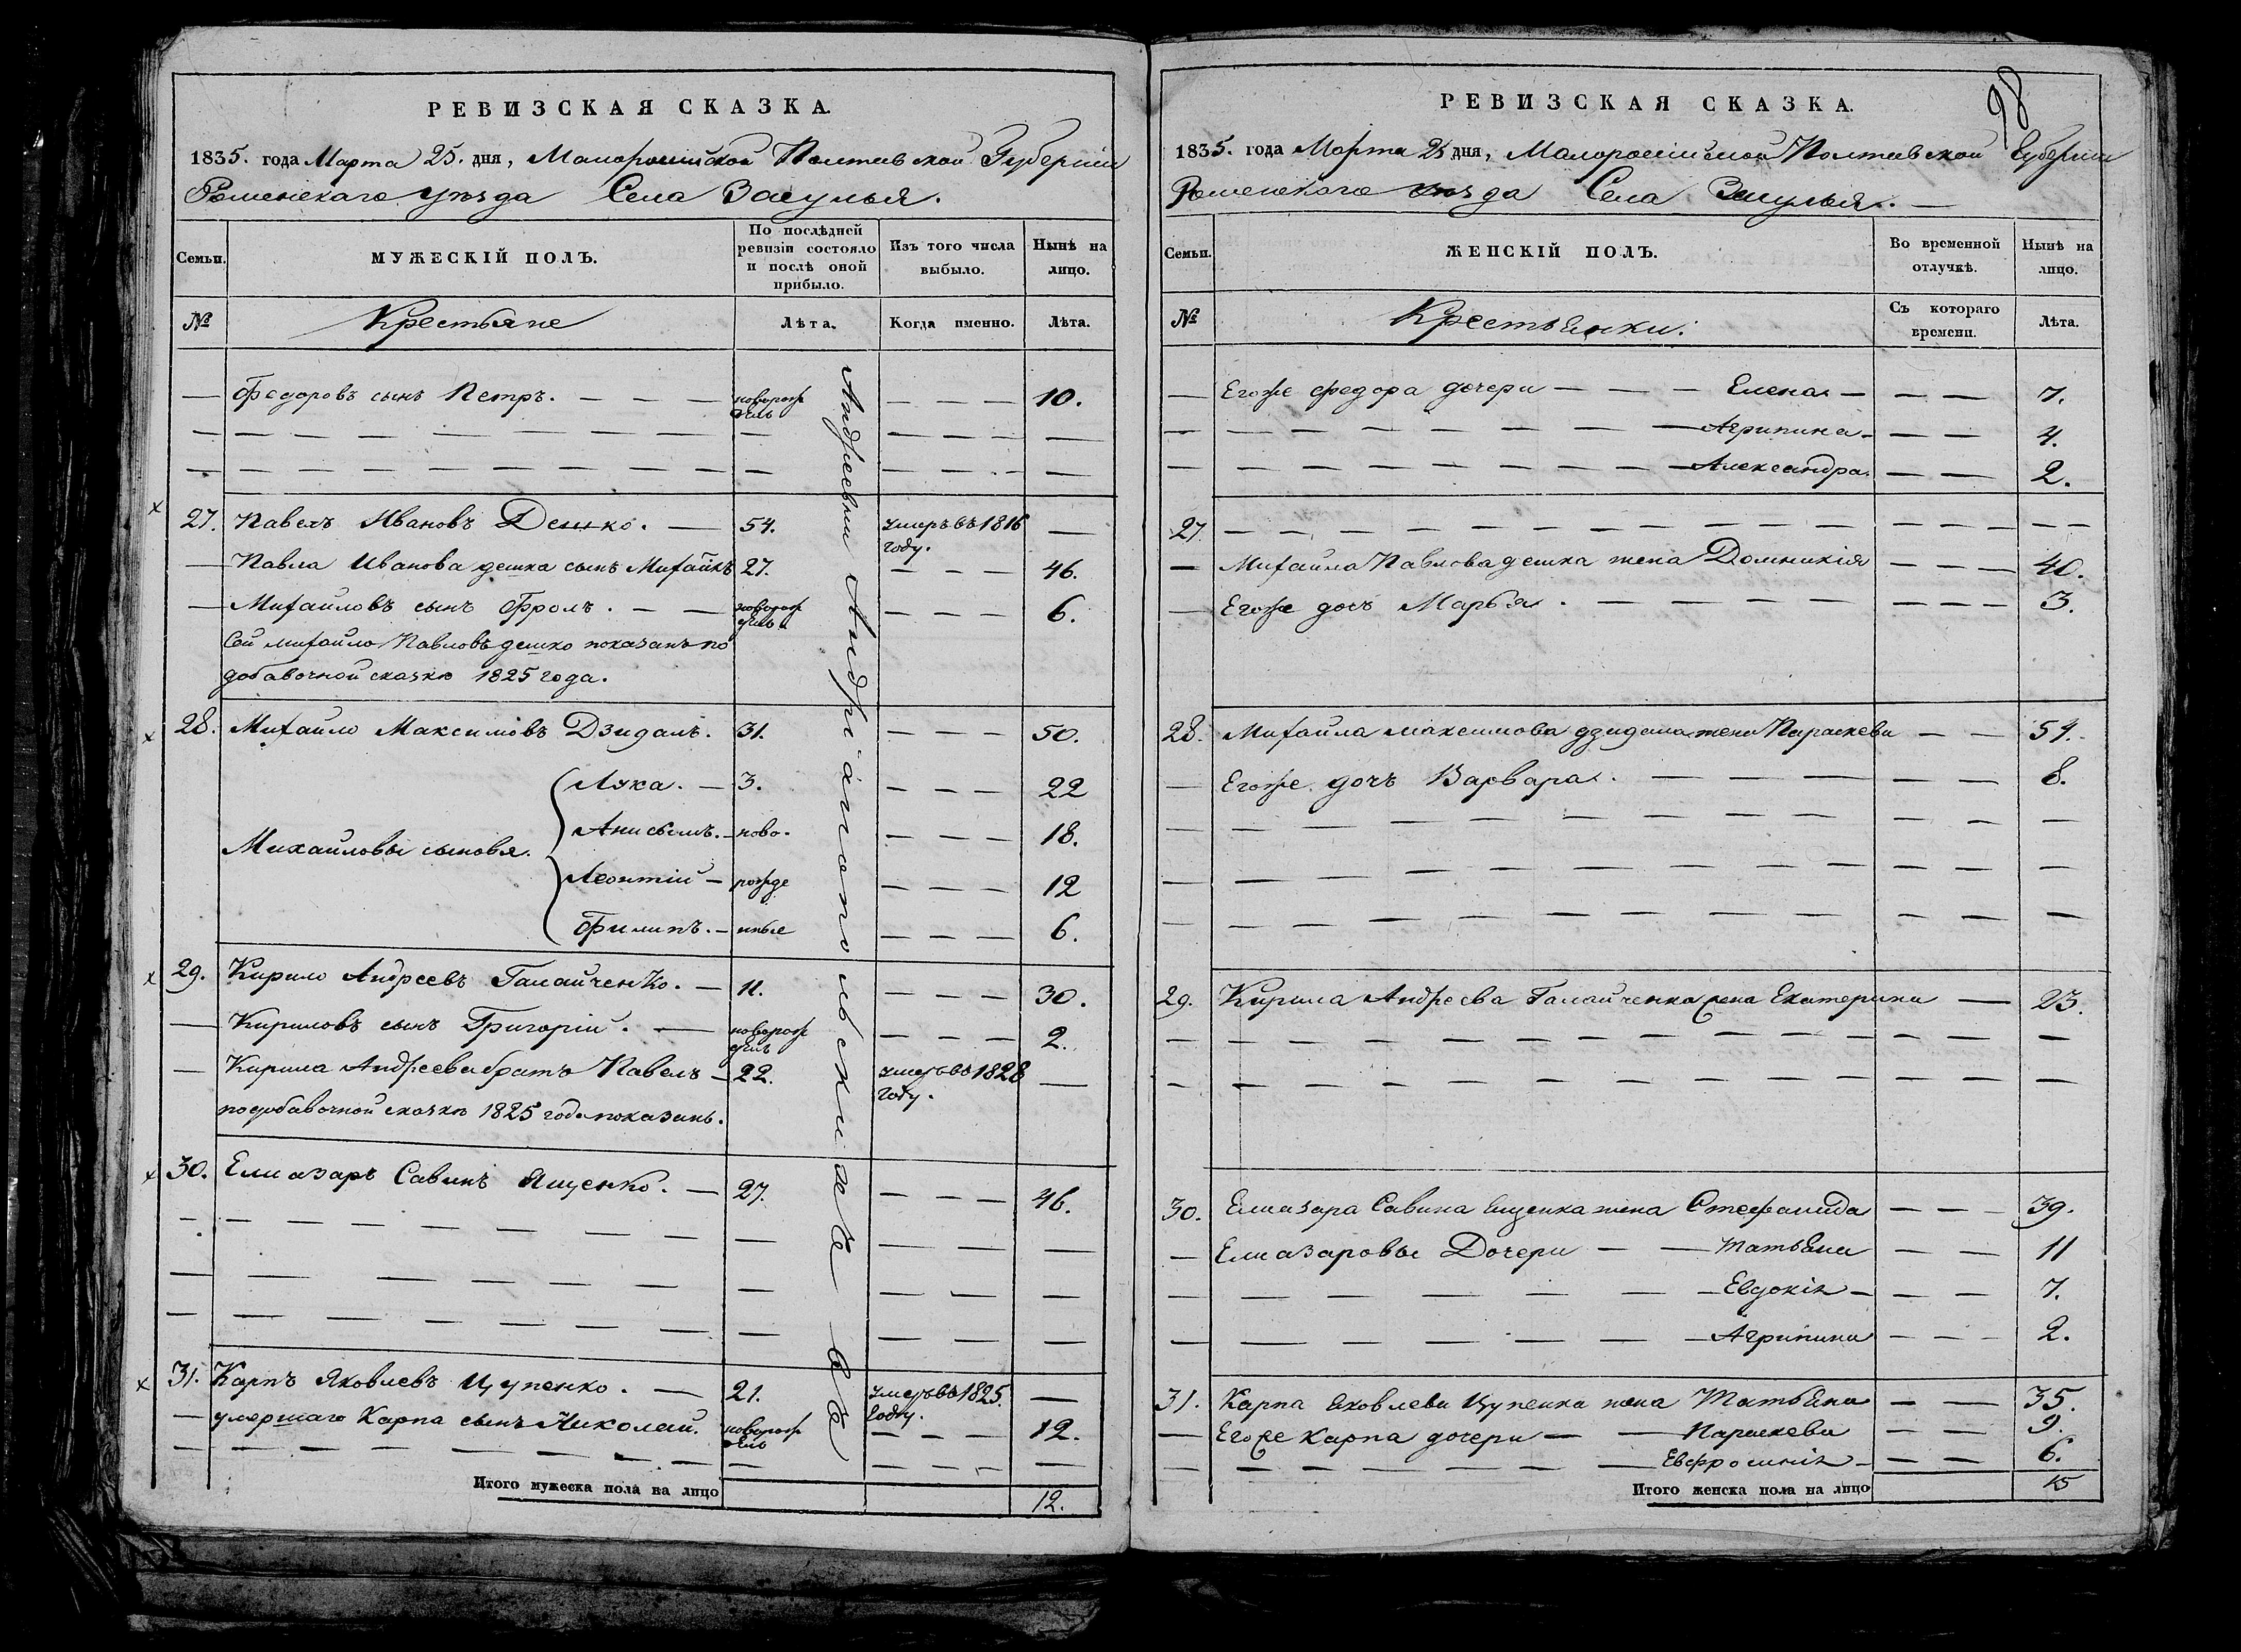 РЕВИЗСКАЯ СКАЗКА.
1835. года Марта 25. дня, Малороссійской Полтавской Губерніи
Роменскаго уѣзда Села Засулья.
Семьи.
МУЖЕСКІЙ ПОЛЪ.
По послѣдней ревизіи состояло и послѣ оной прибыло.
Изъ того числа выбыло.
Нынѣ на лицо.
№
Крестьяне
Лѣта.
Когда именно.
Лѣта.
Федоровъ сынъ Петръ. — — — новорож денъ — — — 10.
27. Павелъ Ивановъ Дешко. — 54. умеръ въ 1816 году. —
— Павла Иванова дешка сынъ Михайлъ 27. — — — 46.
— Михайловъ сынъ Фролъ. — — новорож денъ — — — 6.
Сей михайло Павловъ дешко показанъ по
добавочной сказкѣ 1825 года.
28. Михайло Максимовъ Дзидалъ. 31. — — — 50.
Михайловы сыновья.
Лука. — 3. — — — 22
Анисимъ. — ново- — — — 18.
Леонтій — рожде — — — 12
Филипъ. — нные — — — 6.
29. Кирило Андреевъ Галайченко. — 11. — — — 30.
— Кириловъ сынъ Григорій. — новорож денъ — — — 2.
— Кирила Андреева братъ Павелъ — 22. умеръ въ 1828 году. —
по добавочной сказкѣ 1825 года показанъ.
30. Елиазаръ Савинъ Ященко. — 27. — — — 46.
31. Карпъ Яковлевъ Цупенко. — 21. умеръ въ 1825. Году. —
— умершаго Карпа сынъ Николай. новорож денъ — — — 12.
Итого мужеска пола на лицо 12.
Андреевны Андріанопольскиха
98
РЕВИЗСКАЯ СКАЗКА.
1835. года Марта 25 дня, Малороссійской Полтавской Губерніи
Роменскаго уѣзда Села Засулья. —
Семьи.
ЖЕНСКІЙ ПОЛЪ.
Во временной отлучкѣ.
Нынѣ на лицо.
№
Крестьянки.
Съ котораго времени.
Лѣта.
— Егоже федора дочери — — — Елена — — — 7.
Агрипина — — — 4.
Александра. — — 2.
27
— Михайла Павлова дешка жена Домникія — — — 40.
— Егоже дочь Марья. — — — 3.
28. Михайла максимова дзидала жена Параскева — — 54.
— Егоже дочь Варвара. — — — 8.
29. Кирила Андреева Галайченка жена Екатерина — 23.
30. Елиазара Савина Ященка жена Стефанида — — — 39.
— Елиазаровы Дочери — — Татьяна — — 11
Евдокія — — — 7.
Агрипина — — — 2.
31. Карпа Яковлева Цупенка жена Татьяна — — 35.
— Егоже Карпа дочери — — Параскева — — 9.
Евфросинія — — — 6.
Итого женска пола на лицо 15